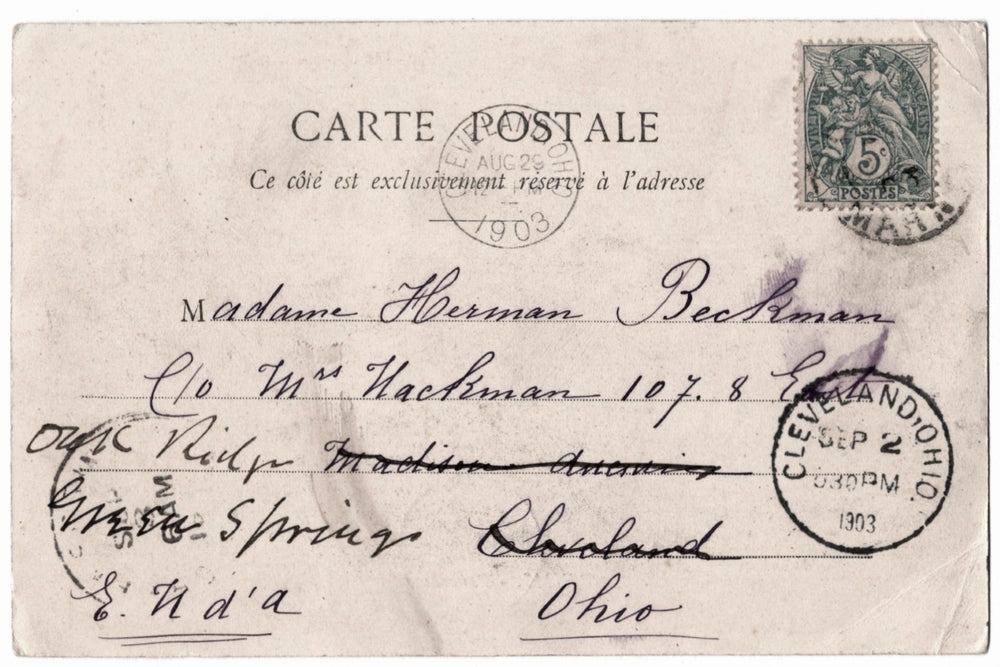 CARTE POSTALE
Ce côté est exclusivement réservé à l'adresse
CLEVELAND, OHIO
AUG 29
12 PM
1903
5c
POSTES
Madame Herman Beckman
c/o Mrs Hackman 107.8 East
Oak Ridge Madison Avenue
Green Springs Cleveland
E. U d'A Ohio
CLEVELAND, OHIO
SEP 2
030PM
1903